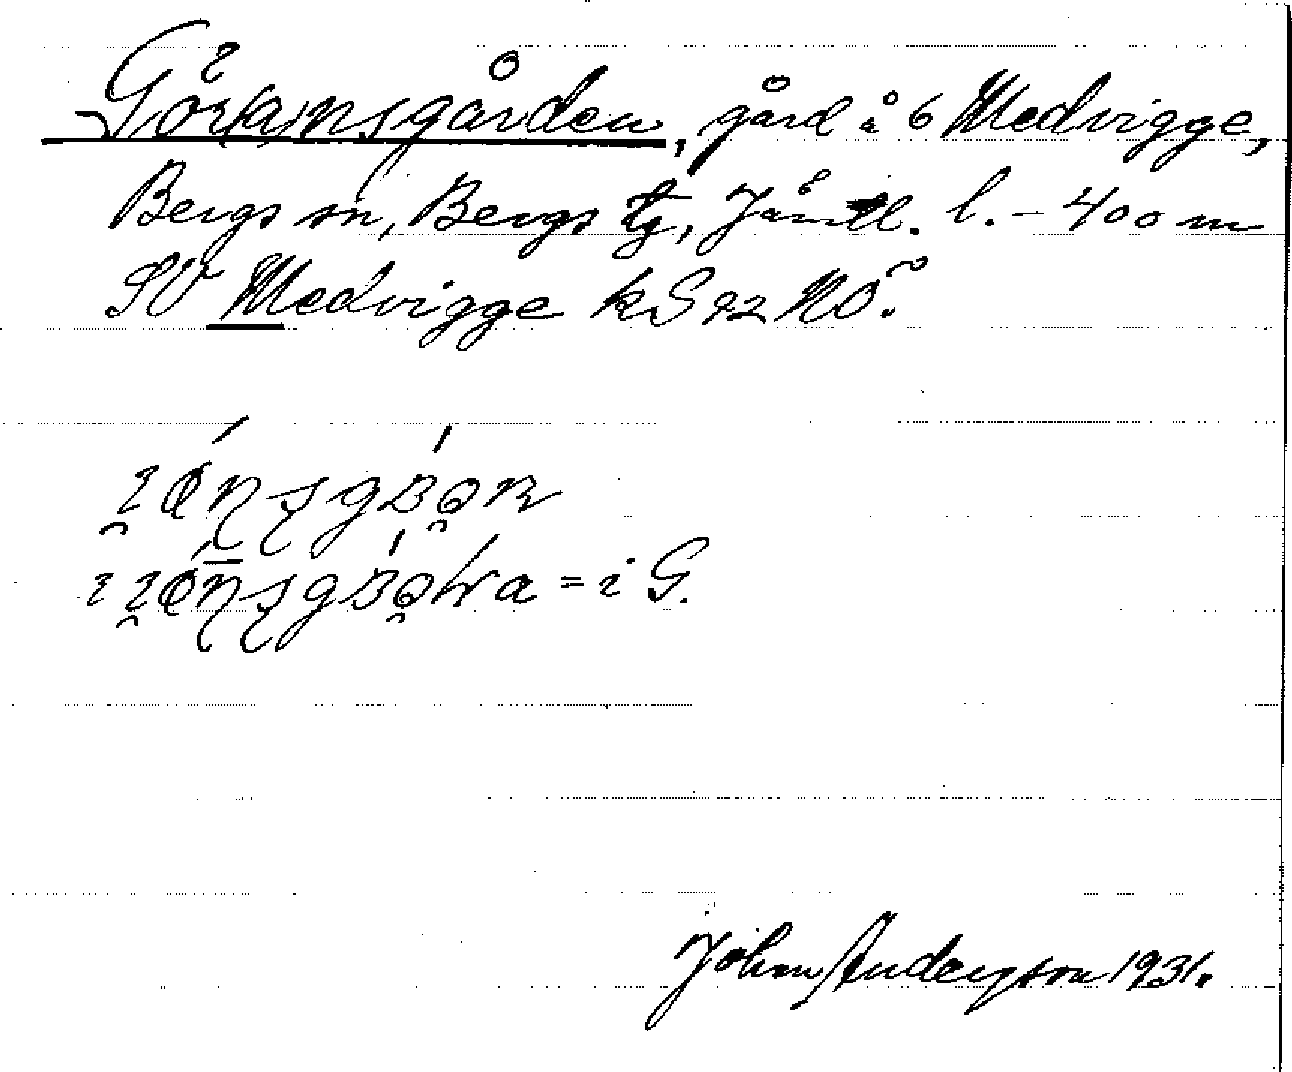 Göra(n)sgården, gård å 6 Medvigge,
Bergs sn, Bergs tg, Jämtl. l. - 400 m
SV Medvigge kS 92 NÖ.
= i G.
John Anderson 1931.